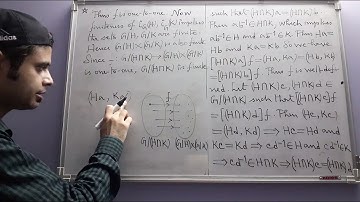 Thus f is one-to-one. Now
finiteness of i_G(H), i_G(K) implies
the sets G/H, G/K are finite.
Hence G/H × G/K is also finite.
Since f: G/(H∩K) → G/H × G/K
is one-to-one, G/(H∩K) is finite
(Ha, Ka)
f
G/(H∩K) G/H × G/K
such that (Ha, Ka) = (Hb, Kb)
Thus ab⁻¹ ∈ H∩K, which implies
that ab⁻¹ ∈ H∩K. Thus Ha =
Hb and Ka = Kb. So we have
[(H∩K)a]f = (Ha, Ka) = (Hb, Kb)
= [(H∩K)b]f. Thus f is well-defined
Let (H∩K)c, (H∩K)d ∈
G/(H∩K) such that [(H∩K)c]f
= [(H∩K)d]f. Thus (Hc, Kc)
= (Hd, Kd) ⇒ Hc = Hd and
Kc = Kd ⇒ cd⁻¹ ∈ H and cd⁻¹ ∈ K
⇒ cd⁻¹ ∈ H∩K ⇒ (H∩K)c = (H∩K)d